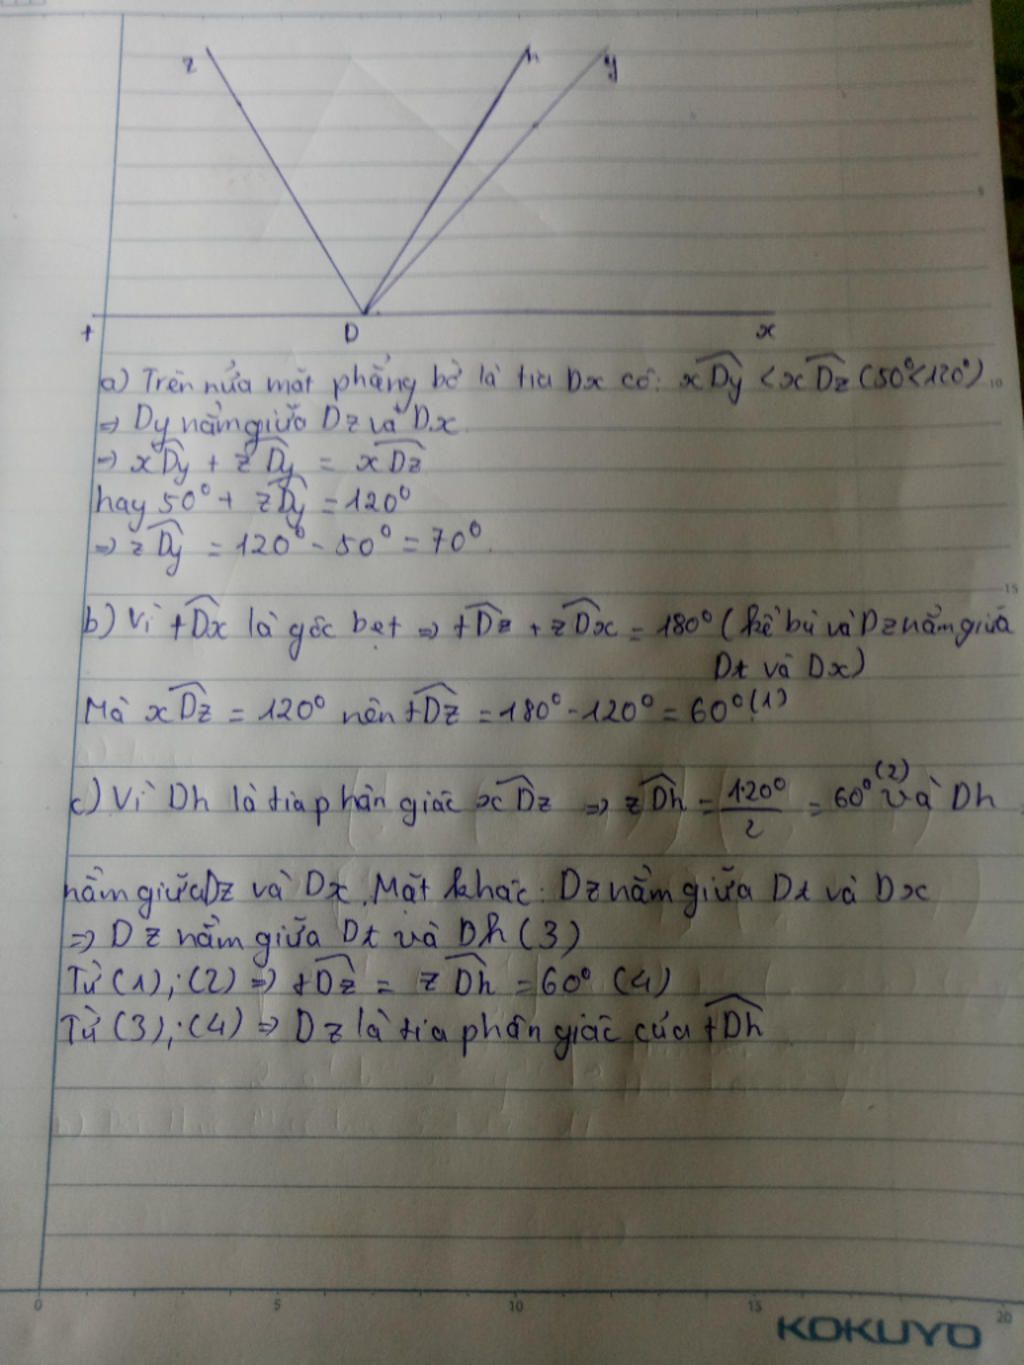 z h y
t D x
a) Trên nửa mặt phẳng bờ là tia Dx có: xDy < xDz (50° < 120°)
⇒ Dy nằm giữa Dz và Dx.
⇒ xDy + zDy = xDz
hay 50° + zDy = 120°
⇒ zDy = 120° - 50° = 70°.
b) Vì tDx là góc bẹt ⇒ tDz + zDx = 180° (kề bù và Dz nằm giữa
Dt và Dx)
Mà xDz = 120° nên tDz = 180° - 120° = 60° (1)
c) Vì Dh là tia phân giác xDz ⇒ zDh = 120°/2 = 60° (2) và Dh
nằm giữa Dz và Dx. Mặt khác: Dz nằm giữa Dt và Dx
⇒ Dz nằm giữa Dt và Dh (3)
Từ (1); (2) ⇒ tDz = zDh = 60° (4)
Từ (3); (4) ⇒ Dz là tia phân giác của tDh
0 5 10 15 20
KOKUYO